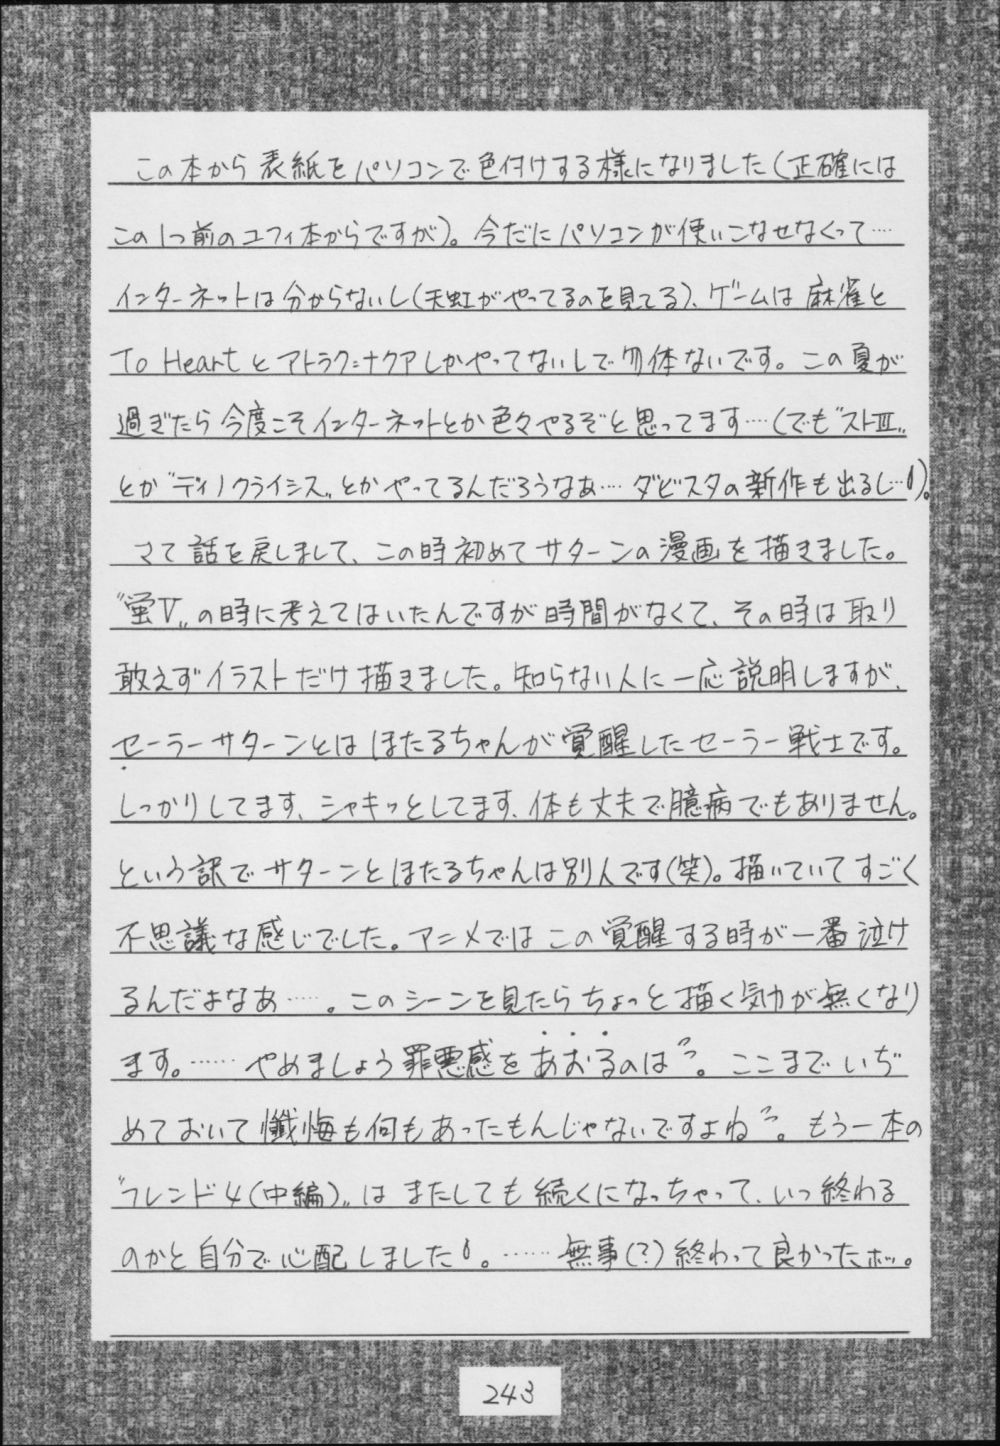 この本から表紙をパソコンで色付けする様になりました(正確には
この1つ前のユフィ本からですが)。今だにパソコンが使いこなせなくって……
インターネットは分からないし(天虹がやってるのを見てる)、ゲームは麻雀と
To Heartとアトラク=ナクアしかやってないしで勿体ないです。この夏が
過ぎたら今度こそインターネットとか色々やるぞと思ってます……(でも"ストⅢ"
とか"ディノクライシス"とかやってるんだろうなあ……ダビスタの新作も出るし…)。
さて話を戻しまして、この時初めてサターンの漫画を描きました。
"蛍Ⅴ"の時に考えてはいたんですが時間がなくて、その時は取り
敢えずイラストだけ描きました。知らない人に一応説明しますが、
セーラーサターンとはほたるちゃんが覚醒したセーラー戦士です。
しっかりしてます、シャキッとしてます、体も丈夫で臆病でもありません。
という訳でサターンとほたるちゃんは別人です(笑)。描いていてすごく
不思議な感じでした。アニメではこの覚醒する時が一番泣け
るんだよなあ……。このシーンを見たらちょっと描く気力が無くなり
ます。……やめましょう罪悪感をあおるのは。ここまでいぢ
めておいて懺悔も何もあったもんじゃないですよね。もう一本の
"フレンド4(中編)"はまたしても続くになっちゃって、いつ終わる
のかと自分で心配しました。……無事(?)終わって良かったホッ。
243